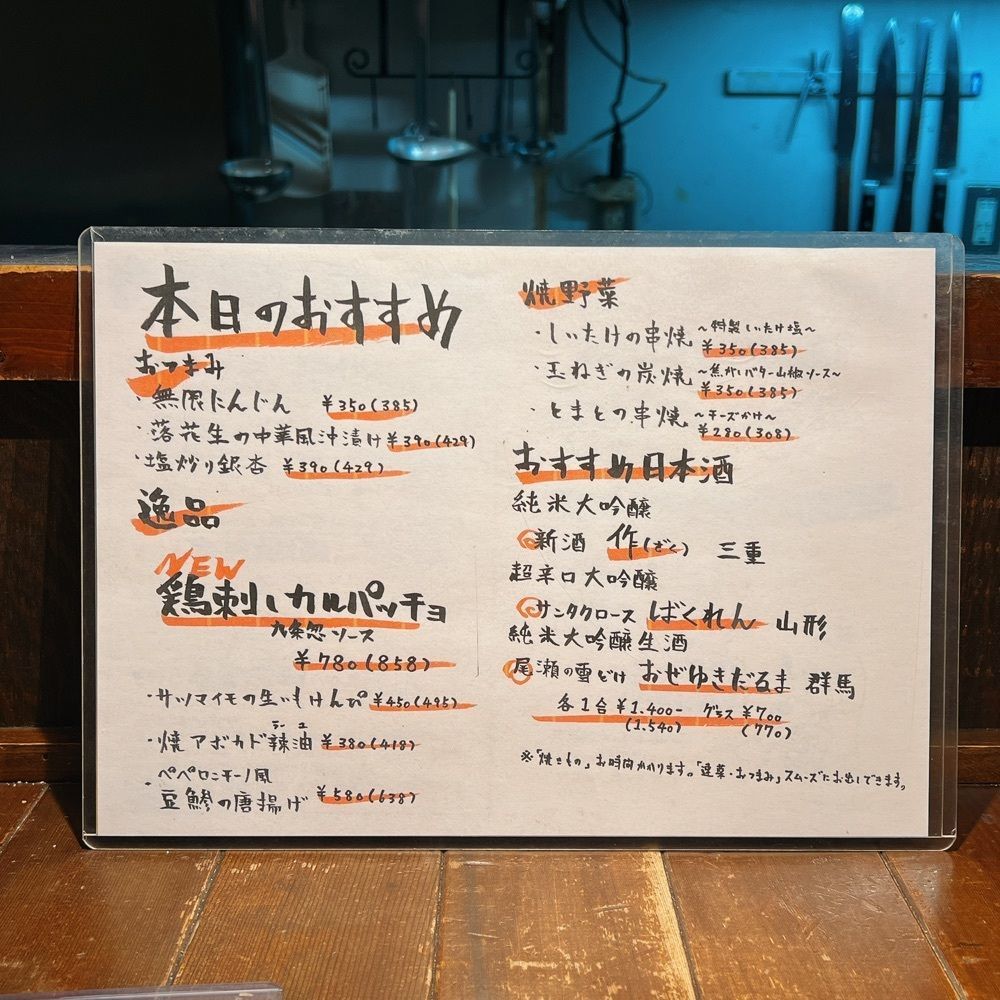 本日のおすすめ
おつまみ
・無限にんじん ¥350(385)
・落花生の中華風沖漬け ¥390(429)
・塩炒り銀杏 ¥390(429)
逸品
NEW
鶏刺しカルパッチョ
九条葱ソース
¥780(858)
・サツマイモの生いもけんぴ ¥450(495)
ラー ユ
・焼アボカド辣油 ¥380(418)
・ペペロンチーノ風
豆鯵の唐揚げ ¥580(638)
焼野菜
・しいたけの串焼 ～特製しいたけ塩～
¥350(385)
・玉ねぎの炭焼 ～焦がしバター山椒ソース～
¥350(385)
・とまとの串焼 ～チーズかけ～
¥280(308)
おすすめ日本酒
純米大吟醸
新酒 作(ざく) 三重
超辛口大吟醸
サンタクロース ばくれん 山形
純米大吟醸生酒
尾瀬の雪どけ おぜゆきだるま 群馬
各1合 ¥1.400- グラス ¥700
(1.540) (770)
※「焼きもの」お時間かかります。「逸菜・おつまみ」スムーズにお出しできます。